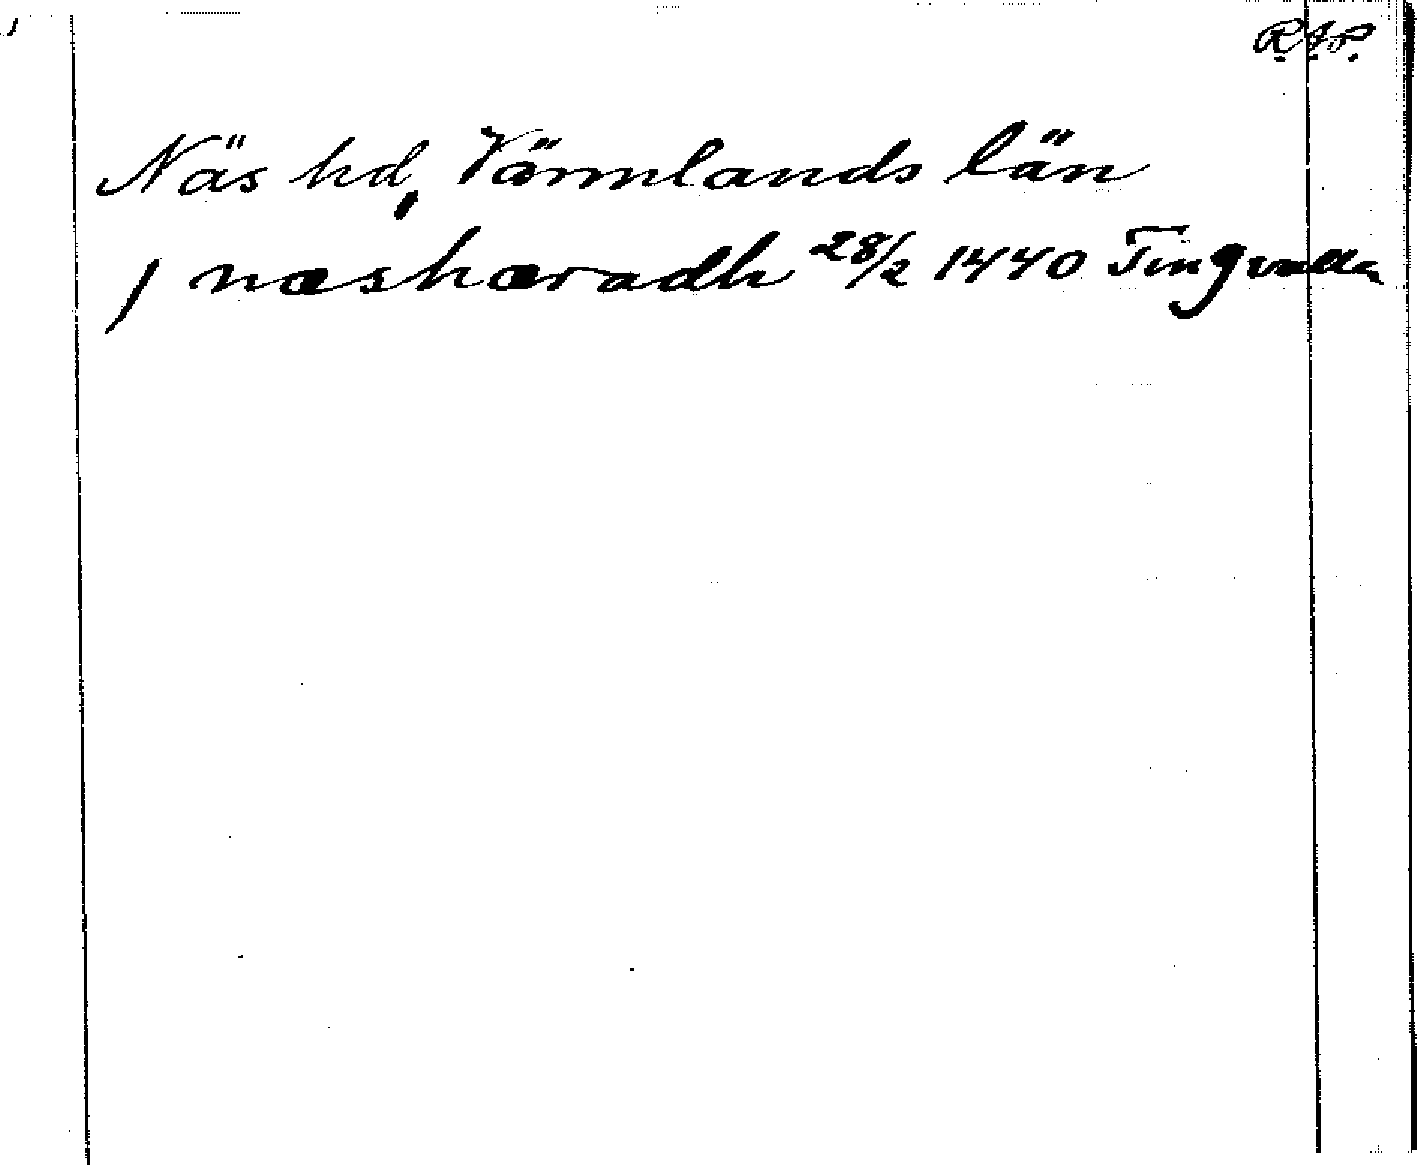 R.A.P.
Näs hd, Värmlands län
j næshæradh 28/2 1440 Tingvalla